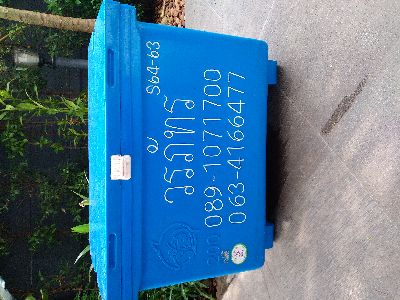 S64-63
วรภัทร
089-1071700
063-4166477